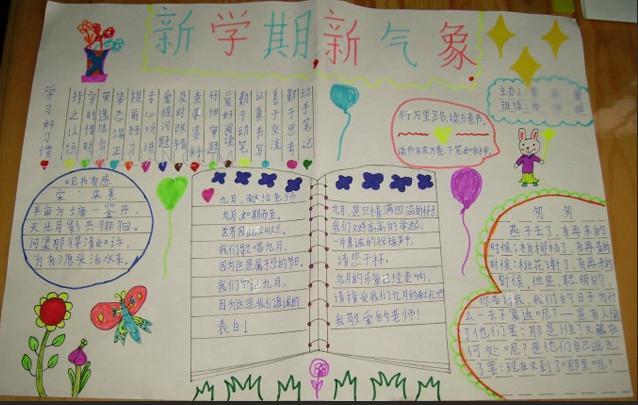 新学期新气象
主办人:
班级:
学习好习惯
持之以恒
学时惜时
姿态端正
提前预习
专心听讲
爱提问题
及时改错
仔细审题
爱好阅读
勤于动笔
认真书写
善于交流
勤于思考
动手笔记
行万里路,读万卷书。
读书破万卷,下笔如有神。
观书有感
宋 朱熹
半亩方塘一鉴开,
天光云影共徘徊。
问渠那得清如许,
为有源头活水来。
九月,献给老师
九月如期而至,
世界因此
我们歌唱九月,
因为这是属于您的节日。
我们牢记九月,
因为这是我们真诚的
表白!
九月,是只情满四溢的杯子
我们双手高高的举起,
一片真诚的祝福声中,
请您干杯。
九月的乐章已经奏响,
请接受我们九月的献礼吧
我敬爱的老师!
匆匆
燕子去了,有再来的
时候;杨柳枯了,有再青的
时候;桃花谢了,有再开的
时候。但是,聪明的,
你告诉我,我们的日子为什
么一去不复返呢?一是有人偷
了他们罢:那是谁?又藏在
何处呢?是他们自己逃走
了罢:现在又到了那里呢?